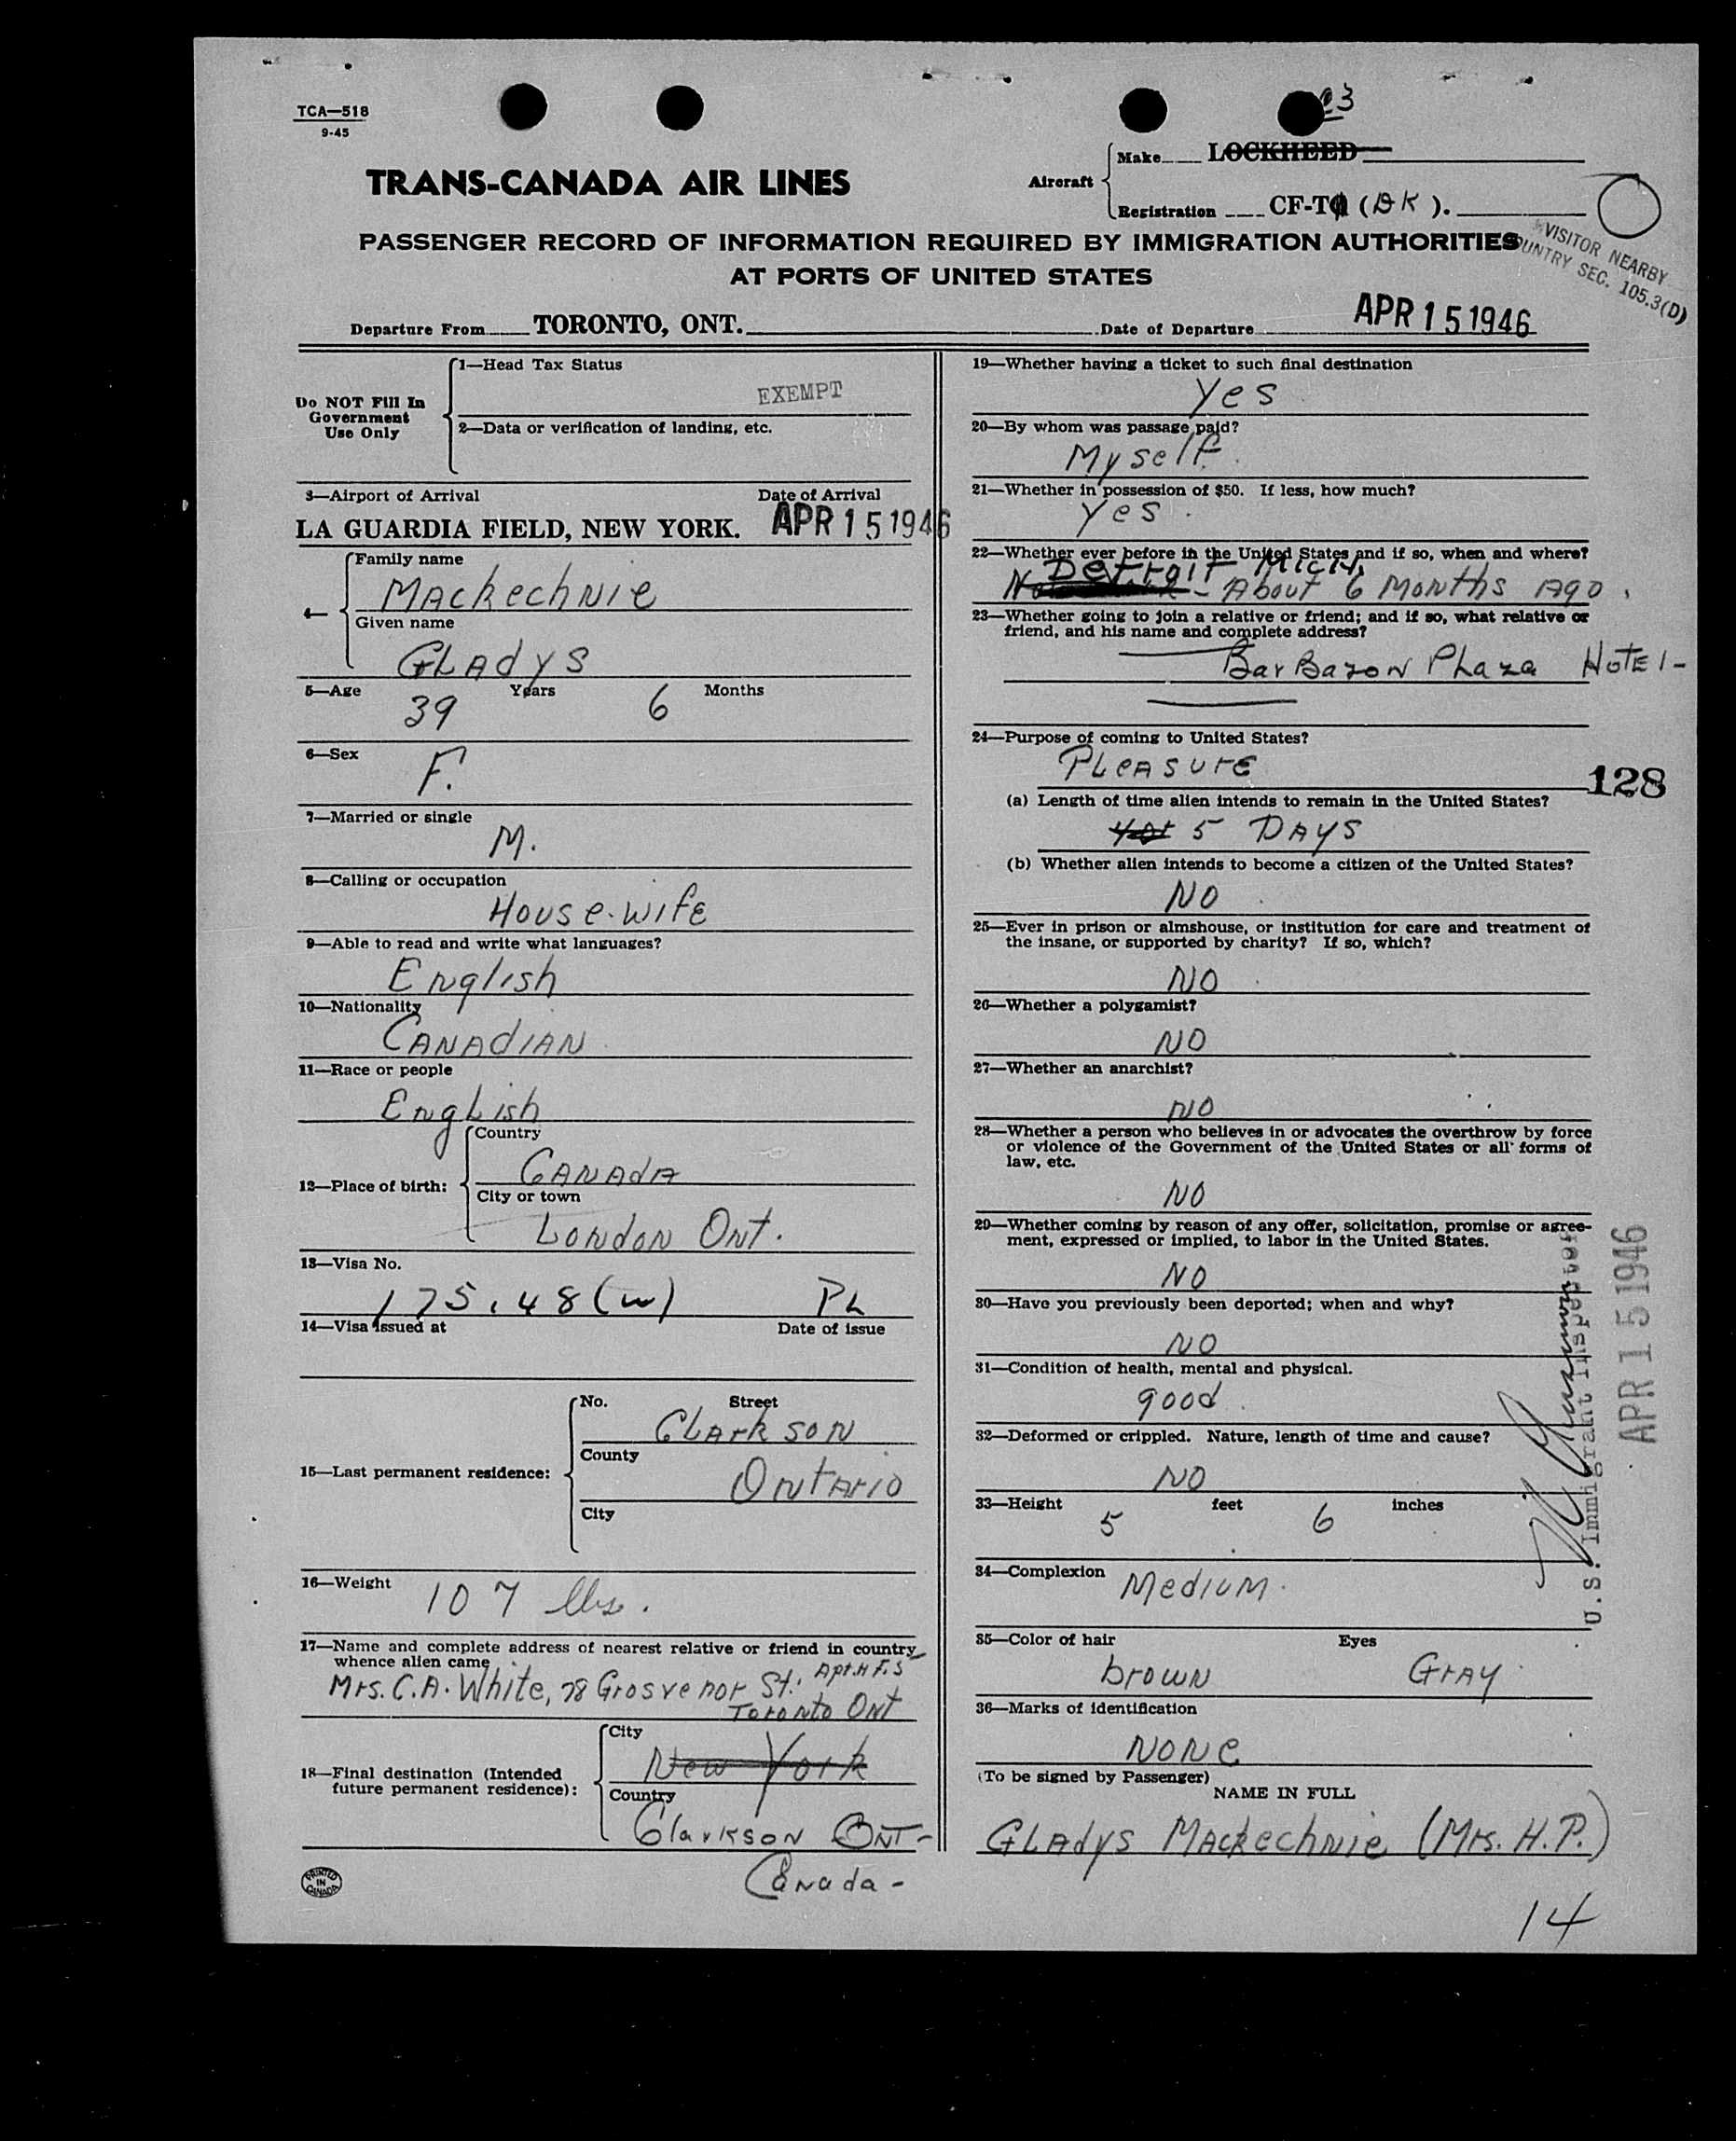 TCA—518
9-45
23
TRANS-CANADA AIR LINES
Aircraft
Make LOCKHEED
Registration CF-T (DK).
VISITOR NEARBY
COUNTRY SEC. 105.3(D)
PASSENGER RECORD OF INFORMATION REQUIRED BY IMMIGRATION AUTHORITIES
AT PORTS OF UNITED STATES
Departure From TORONTO, ONT. Date of Departure APR 15 1946
Do NOT Fill In
Government
Use Only
1—Head Tax Status
EXEMPT
2—Data or verification of landing, etc.
3—Airport of Arrival Date of Arrival
LA GUARDIA FIELD, NEW YORK. APR 15 1946
4—
Family name
Mackechnie
Given name
Gladys
5—Age 39 Years 6 Months
6—Sex
F.
7—Married or single
M.
8—Calling or occupation
House-wife
9—Able to read and write what languages?
English
10—Nationality
Canadian
11—Race or people
English
12—Place of birth:
Country
Canada
City or town
London Ont.
13—Visa No.
175.48(w) PL
14—Visa issued at Date of issue
15—Last permanent residence:
No. Street
Clarkson
County
Ontario
City
16—Weight 107 lbs.
17—Name and complete address of nearest relative or friend in country
whence alien came
Mrs. C.A. White, 78 Grosvenor St. Apt.
Toronto Ont
18—Final destination (Intended
future permanent residence):
City
New York
Country
Clarkson Ont-
Canada-
PRINTED
IN
CANADA
19—Whether having a ticket to such final destination
Yes
20—By whom was passage paid?
Myself.
21—Whether in possession of $50. If less, how much?
Yes.
22—Whether ever before in the United States and if so, when and where?
Detroit Mich.
- About 6 Months Ago.
23—Whether going to join a relative or friend; and if so, what relative or
friend, and his name and complete address?
BarBazon Plaza Hotel-
24—Purpose of coming to United States?
Pleasure
128
(a) Length of time alien intends to remain in the United States?
5 Days
(b) Whether alien intends to become a citizen of the United States?
No
25—Ever in prison or almshouse, or institution for care and treatment of
the insane, or supported by charity? If so, which?
No
26—Whether a polygamist?
No
27—Whether an anarchist?
No
28—Whether a person who believes in or advocates the overthrow by force
or violence of the Government of the United States or all forms of
law, etc.
No
29—Whether coming by reason of any offer, solicitation, promise or agree-
ment, expressed or implied, to labor in the United States.
No
30—Have you previously been deported; when and why?
No
31—Condition of health, mental and physical.
good.
32—Deformed or crippled. Nature, length of time and cause?
No
33—Height 5 feet 6 inches
34—Complexion Medium.
35—Color of hair Eyes
brown Gray
36—Marks of identification
None
(To be signed by Passenger)
NAME IN FULL
Gladys Mackechnie (Mrs. H.P.)
14
U.S. Immigrant Inspector
APR 15 1946